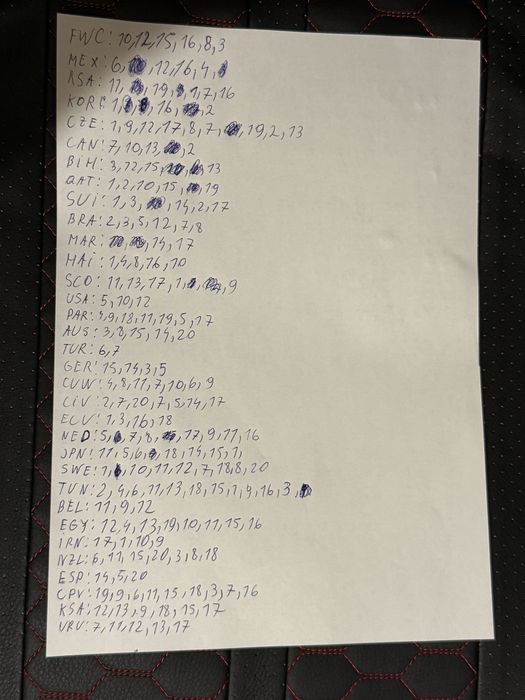 FWC: 10,12,15,16,8,3
MEX: 6, 12,16,4,
RSA: 11, 19, 1,7,16
KOR: 1, 16, 2
CZE: 1,9,12,17,8,7, 19,2,13
CAN: 7,10,13, 2
BiH: 3,12,15, 13
QAT: 1,2,10,15, 19
SUi: 1,3, 14,2,17
BRA: 2,3,5,12,7,8
MAR: 14,17
HAi: 1,4,8,16,10
SCO: 11,13,17,1, 9
USA: 5,10,12
PAR: 4,9,18,11,19,5,17
AUS: 3,8,15,14,20
TUR: 6,7
GER: 15,14,3,5
CUW: 4,8,11,7,10,6,9
CiV: 2,7,20,7,5,14,17
ECU: 1,3,16,18
NED: 5, 7,8, 17,9,11,16
JPN: 11,5,6,9,18,14,15,1,
SWE: 1, 10,11,12,7,18,8,20
TUN: 2,4,6,11,13,18,15,1,9,16,3,
BEL: 11,9,12
EGY: 12,4,13,19,10,11,15,16
iRN: 17,1,10,9
NZL: 6,11,15,20,3,8,18
ESP: 14,5,20
CPV: 19,9,6,11,15,18,3,7,16
KSA: 12,13,9,18,15,17
URU: 7,11,12,13,17